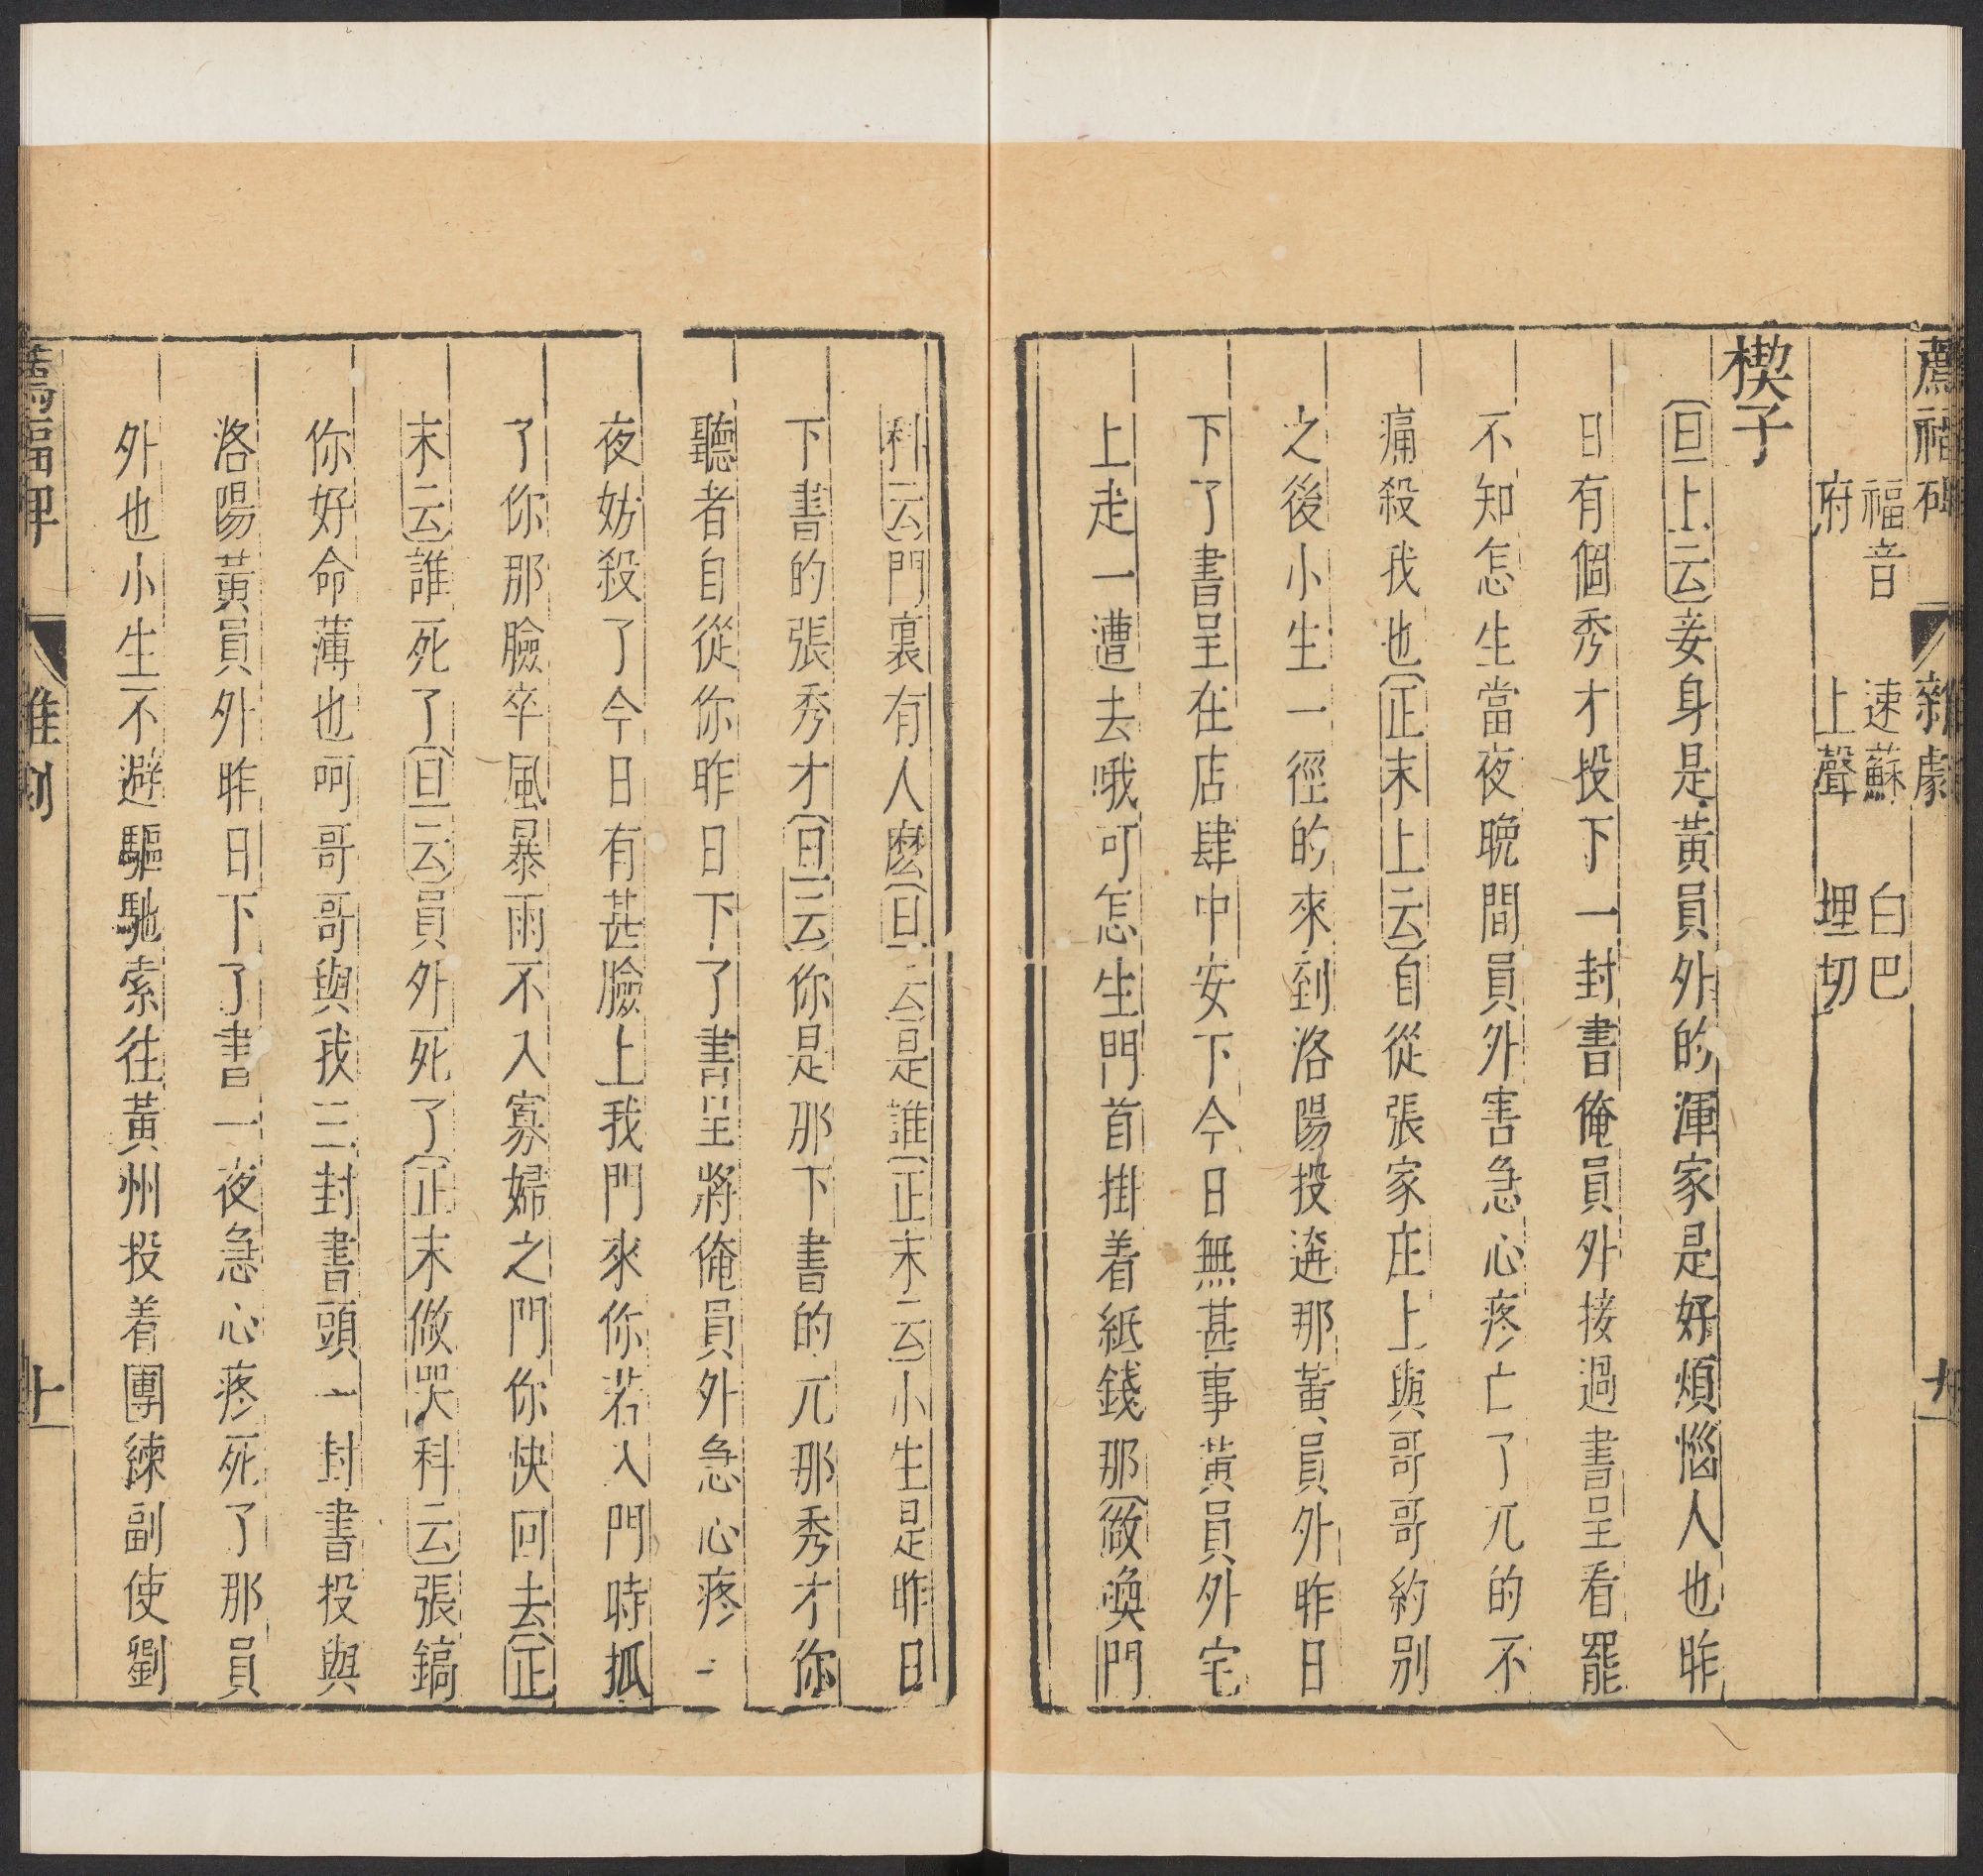 薦福碑 雜劇 九
福音府 速蘇上聲 白巴埋切
楔子
〔旦上云〕妾身是黃員外的渾家是好煩惱人也昨
日有個秀才投下一封書俺員外接過書呈看罷
不知怎生當夜晚間員外害急心疼亡了兀的不
痛殺我也〔正末上云〕自從張家庄上與哥哥約別
之後小生一徑的來到洛陽投逩那黃員外昨日
下了書呈在店肆中安下今日無甚事黃員外宅
上走一遭去哦可怎生門首掛着紙錢那〔做喚門
科云〕門裏有人麽〔旦云〕是誰〔正末云〕小生是昨日
下書的張秀才〔旦云〕你是那下書的兀那秀才你
聽者自從你昨日下了書呈將俺員外急心疼一
夜妨殺了今日有甚臉上我門來你若入門時抓
了你那臉卒風暴雨不入寡婦之門你快回去〔正
末云〕誰死了〔旦云〕員外死了〔正末做哭科云〕張鎬
你好命薄也呵哥哥與我三封書頭一封書投與
洛陽黃員外昨日下了書一夜急心疼死了那員
外也小生不避驅馳索往黃州投着團練副使劉
薦福碑 雜劇 十